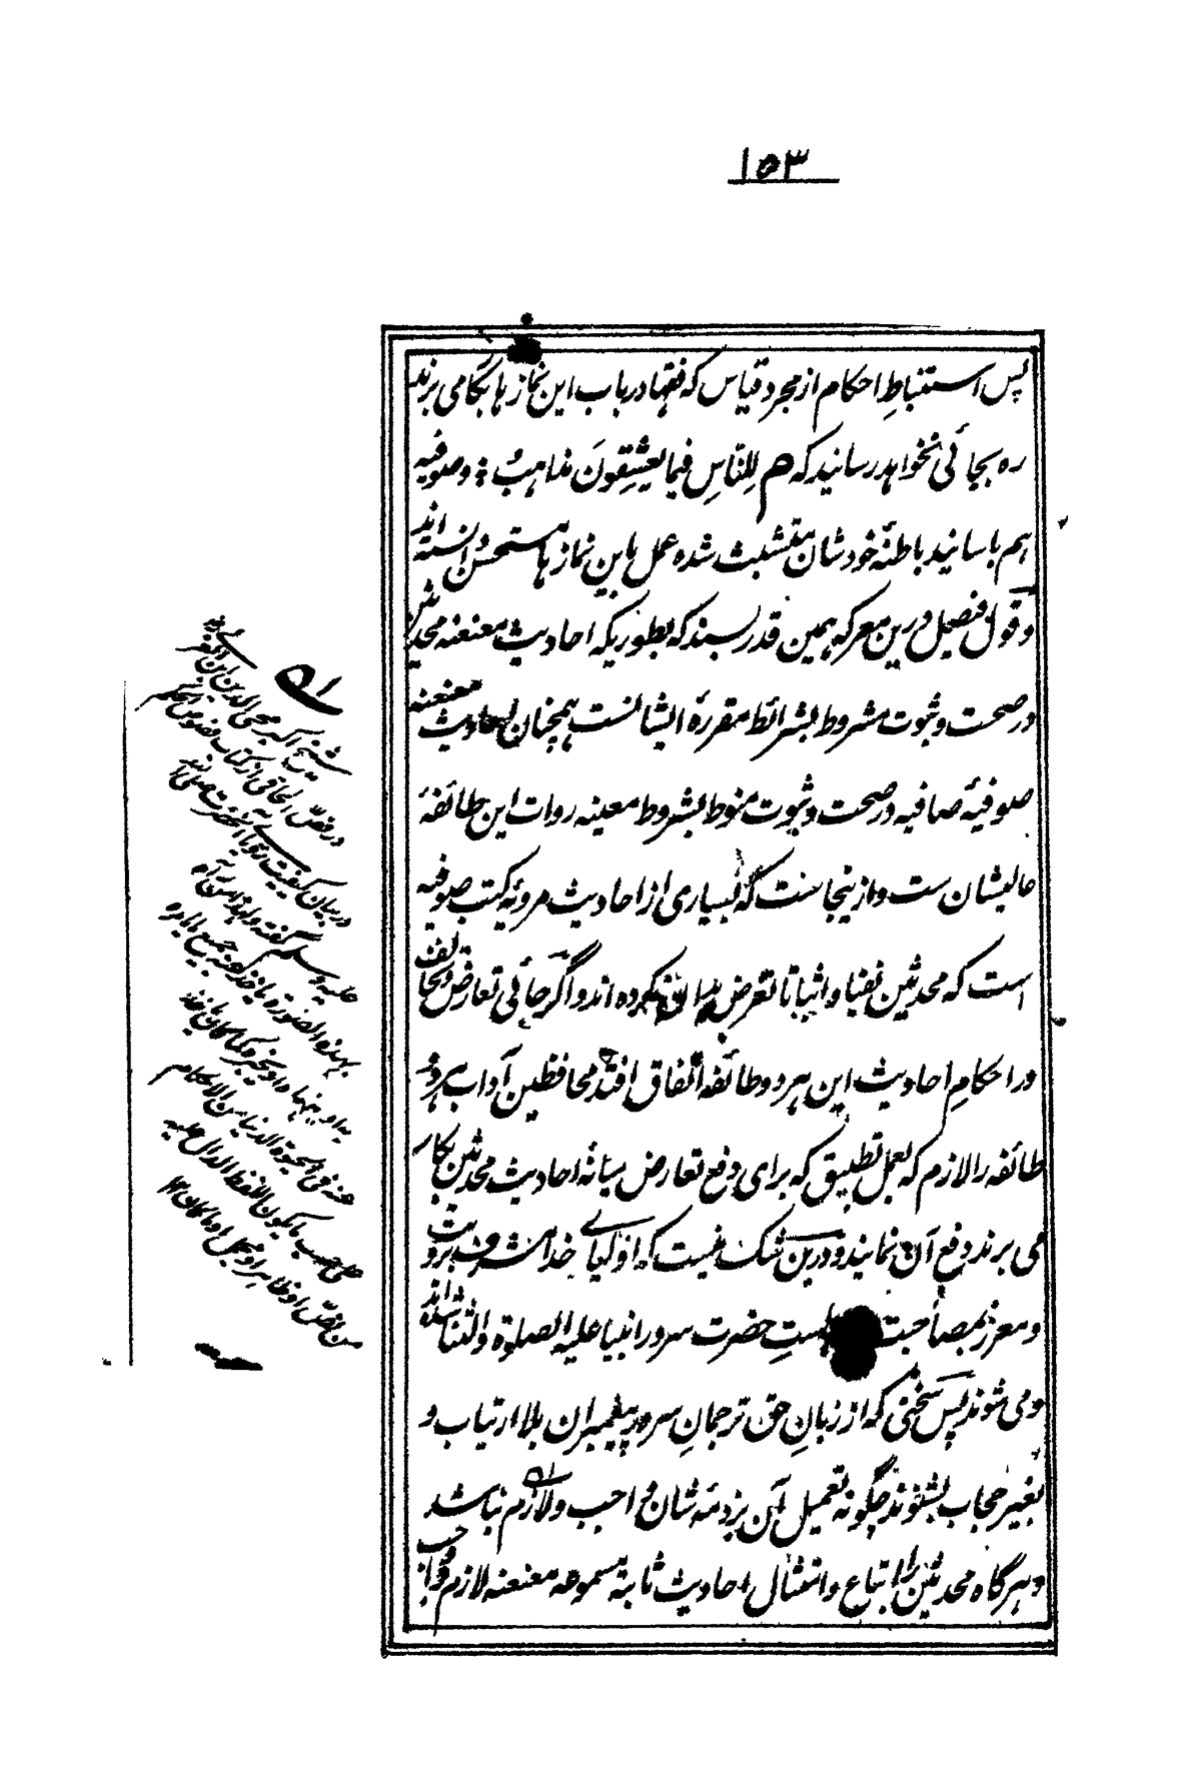 ۱۵۳
پس استنباطِ احکام از مجرد قیاس که فقها در باب این نمازها بکار می برند
ره بجائی نخواهد رسانید که هم لِلنّاسِ فیما یعشِقونَ مذاهبُ ؛ وصوفیه
هم باسانید باطنهٔ خودشان متشبث شده عمل باین نمازها مستحسن دانسته اند
وقول فیصل درین معرکه همین قدر بسند که بطوریکه احادیث معنعنه محدثین
در صحت و ثبوت مشروط بشرائط مقررهٔ ایشانست همچنان احادیث معنعنه
صوفیهٔ صافیه در صحت و ثبوت منوط بشروط معینه روات این طائفهٔ
عالیشان ست وازینجاست که بسیاری از احادیث مرویّه کتب صوفیه
است که محدثین نفیا و اثباتا تعرض بآن نکرده اند واگر جائی تعارض وتخالف
در احکامِ احادیث این هر دو طائفه اتفاق افتد محافظین آداب هردو
طائفه را لازم که بعمل تطبیق که برای دفع تعارض میانهٔ احادیث محدثین بکار
می برند دفع آن نمایند ودرین شک نیست که اولیای خدا مشرف برویت
ومعرز بمصاحبت حضرت سرور انبیا علیه الصلوة والثنا شده اند
ومی شوند پس سخنی که از زبانِ حق ترجمانِ سرور پیغمبران بلا ارتیاب و
بغیر حجاب بشنوند چگونه تعمیل آن بر ذمّه شان واجب ولازم نباشد
وهرگاه محدثین را اتباع وامتثال احادیث ثابته مسموعه معنعنه لازم وواجب
شیخ اکبر محی الدین ابن العربی
در فصّ اسحاقی از کتاب فصوص الحکم
در بیان کیفیت رویای آنحضرت صلی الله
علیه وسلم گفته
بهذه الصورة یاخذ عنه جمیع ما یامره
به او ینهاه او یخبره کما کان یاخذ
عنه فی الحیوة الدنیا من الاحکام
علی حسب ما یکون اللفظ الدال علیه
من نصّ او ظاهر او مجمل او ما کان ۱۲